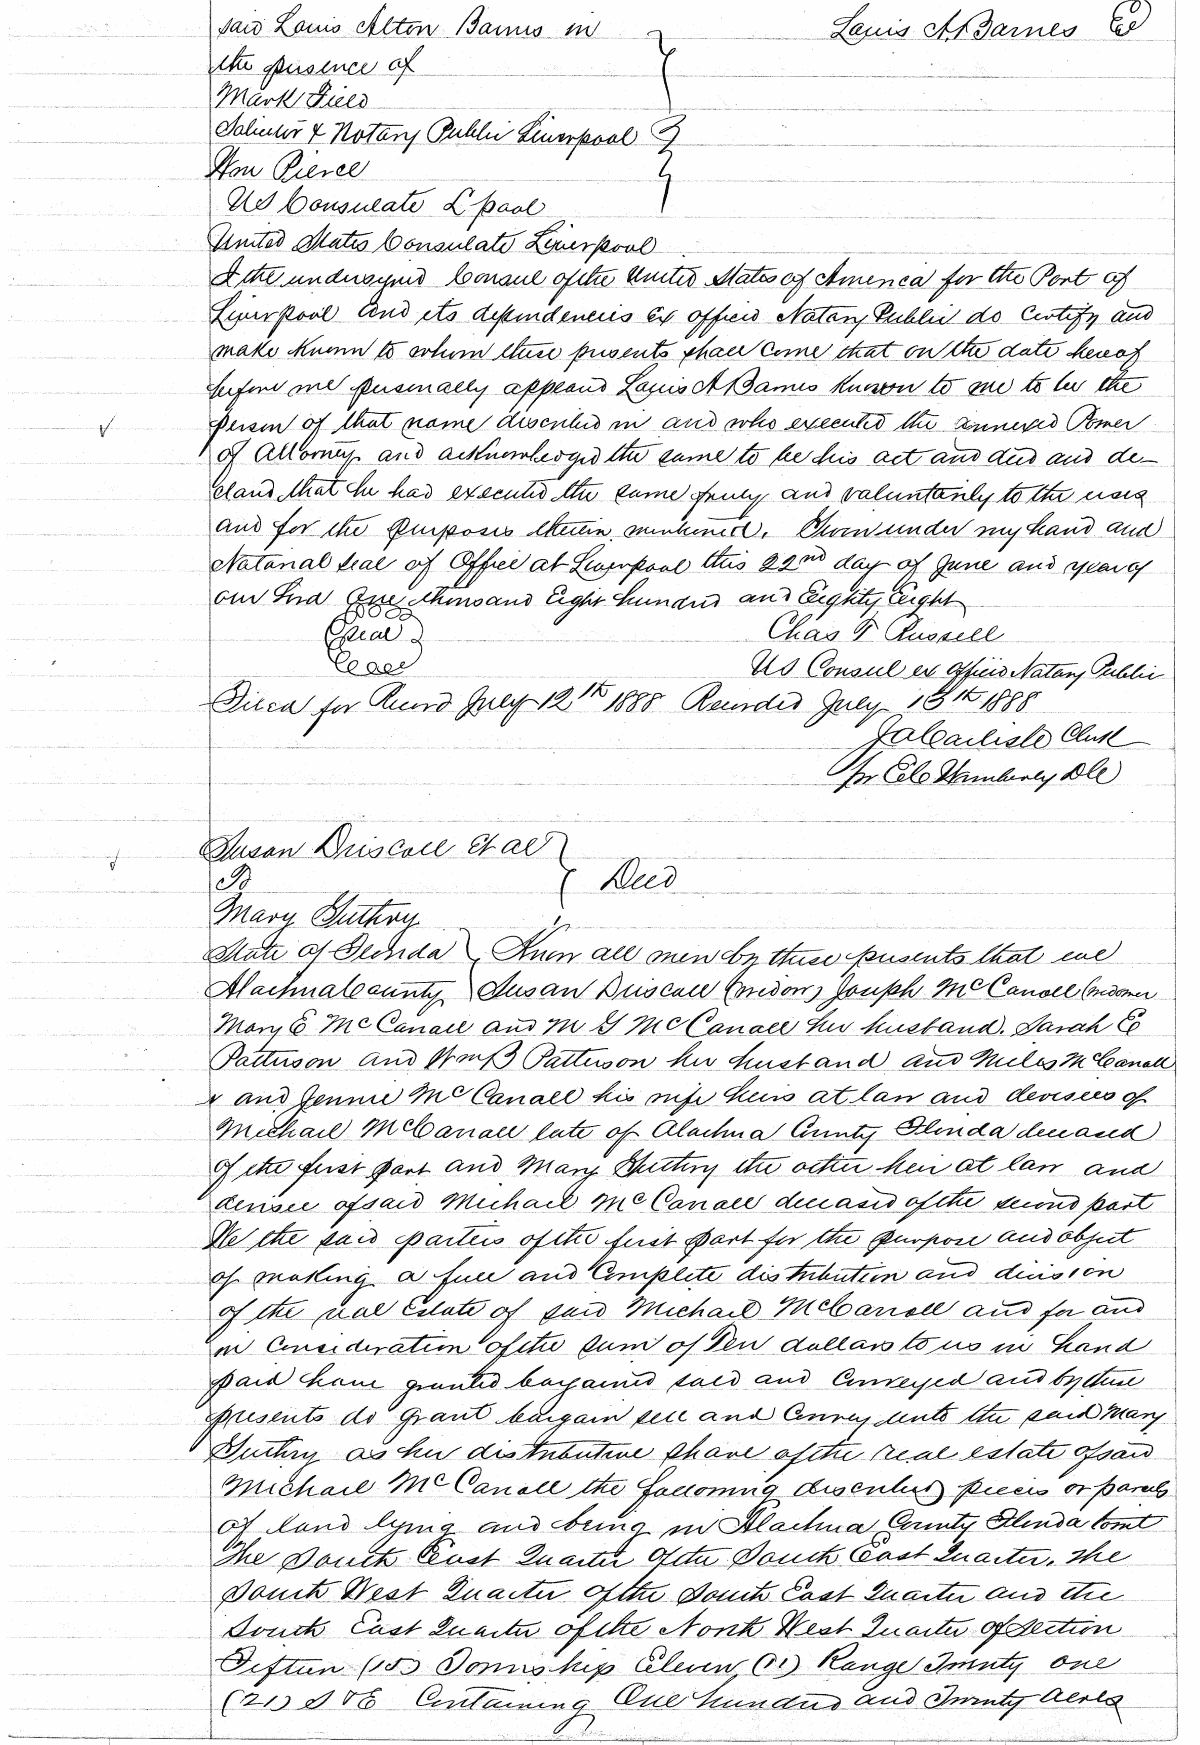 said Louis Alton Barnes in
Louis A Barnes
the presence of
Mark Field
Solicitor & Notary Public Liverpool
Wm Pierce
US Consulate L'pool
United States Consulate Liverpool
I the undersigned Consul of the United States of America for the Port of
Liverpool and its dependencies Ex officio Notary Public do Certify and
make known to whom these presents shall Come that on the date hereof
before me personally appeared Louis A Barnes known to me to be the
person of that name described in and who executed the annexed Power
of Attorney and acknowledged the same to be his act and deed and de-
clared that he had executed the same freely and voluntarily to the uses
and for the purposes therein mentioned. Given under my hand and
Notarial seal of Office at Liverpool this 22nd day of June and year of
our Lord One thousand Eight hundred and Eighty Eight
Seal
Chas T Russell
US Consul ex officio Notary Public
Filed for Record July 12th 1888 Recorded July 13th 1888
J A Carlisle Clerk
pr DC
Susan Driscoll et al
To
Deed
Mary Guthry
State of Florida Know all men by these presents that we
Alachua County Susan Driscoll (widow) Joseph McCarroll (widower
Mary E McCarroll and M G McCarroll her husband. Sarah E
Patterson and Wm B Patterson her husband and Miles McCarroll
and Jennie McCarroll his wife heirs at law and devisees of
Michael McCarroll late of Alachua County Florida deceased
of the first part and Mary Guthry the other heir at law and
devisee of said Michael McCarroll deceased of the second part
We the said parties of the first part for the purpose and object
of making a full and Complete distribution and division
of the real Estate of said Michael McCarroll and for and
in Consideration of the sum of Ten dollars to us in hand
paid have granted bargained sold and Conveyed and by these
presents do grant bargain sell and Convey unto the said Mary
Guthry as her distributive share of the real estate of said
Michael McCarroll the following described pieces or parcels
of land lying and being in Alachua County Florida towit
The South East Quarter of the South East Quarter. The
South West Quarter of the South East Quarter and the
South East Quarter of the North West Quarter of Section
Fifteen (15) Township Eleven (11) Range Twenty one
(21) S & E Containing One hundred and Twenty Acres